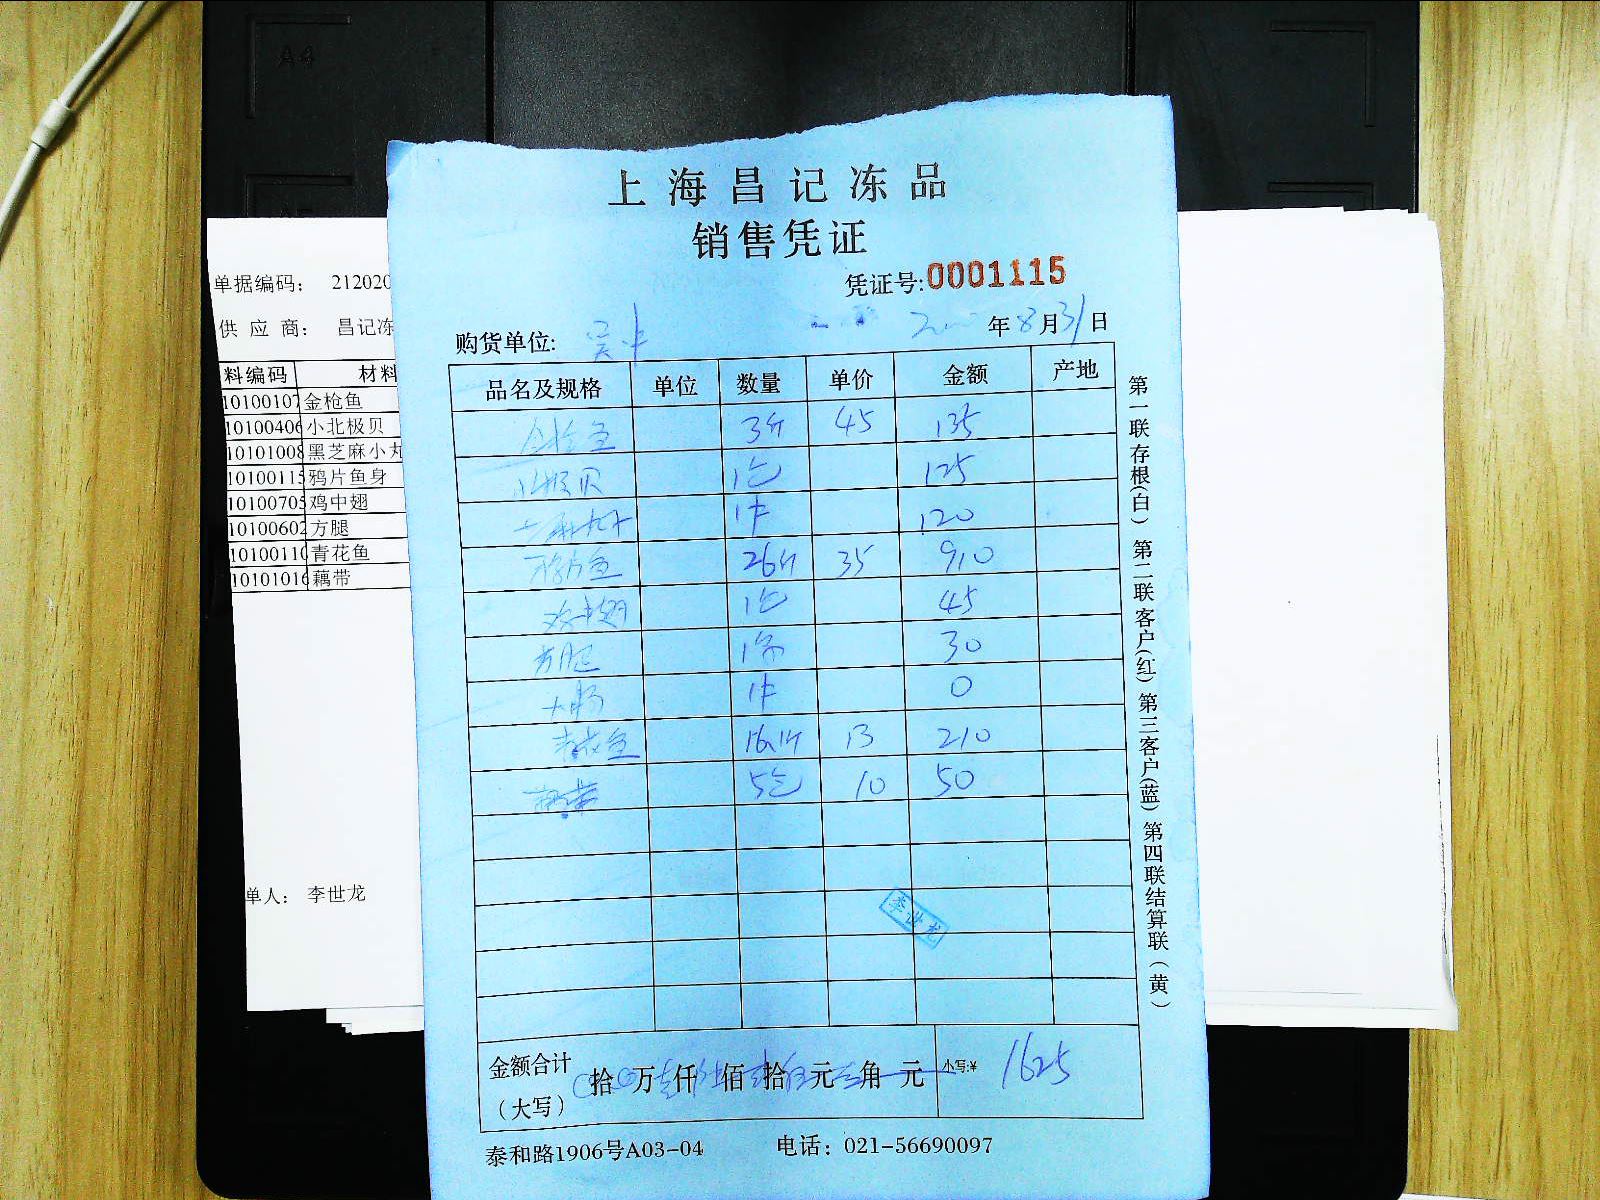 上海昌记冻品
销售凭证
凭证号:0001115
购货单位: 年8月31日
品名及规格 单位 数量 单价 金额 产地
金枪鱼 3斤 45 135
北极贝 1包 125
1件 120
26斤 35 910
鸡中翅 1包 45
方腿 1条 30
大肠 1件 0
青花鱼 16.1斤 13 210
藕带 5包 10 50
李世龙
金额合计(大写) 拾 万 仟 佰 拾 元 角 元 小写:¥ 1625
泰和路1906号A03-04 电话:021-56690097
第一联存根(白) 第二联客户(红) 第三客户(蓝) 第四联结算联(黄)
单据编码: 212020
供应商: 昌记冻
料编码 材料
10100107 金枪鱼
10100406 小北极贝
10101008 黑芝麻小丸
10100115 鸦片鱼身
10100705 鸡中翅
10100602 方腿
10100110 青花鱼
10101016 藕带
单人: 李世龙
A4